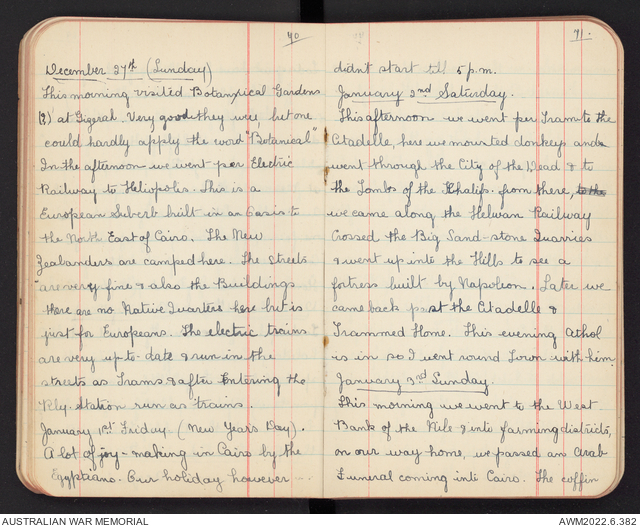 40
December 27th (Sunday)
This morning visited Botanical Gardens
(?) at Gizeral. Very good they were, but one
could hardly apply the word "Botanical"
In the afternoon we went per Electric
Railway to Heliopolis. This is a
European Suberb built in an Oasis to
the North East of Cairo. The New
Zealanders are camped here. The streets
are very fine & also the Buildings
there are no Native Quarters here but is
just for Europeans. The electric trains
are very up-to-date & run in the
streets as Trams & after Entering the
Rly. Station run as trains.
January 1st Friday. (New Years Day).
A lot of joy-making in Cairo by the
Egyptians. Our holiday however
71.
didn't start till 5 p.m.
January 2nd Saturday.
This afternoon we went per Tram to the
Citadelle, here we mounted donkeys and
went through the City of the Dead & to
the Tombs of the Khalifs. from there, to the
we came along the Helwan Railway
Crossed the Big Sand-stone Quarries
& went up into the Hills to see a
fortress built by Napoleon. Later we
came back past the Citadelle &
Trammed Home. This evening Athol
is in so I went round Town with him.
January 3rd Sunday.
This morning we went to the West
Bank of the Nile & into farming districts,
on our way home, we passed an Arab
Funeral coming into Cairo. The coffin
AUSTRALIAN WAR MEMORIAL
AWM2022.6.382